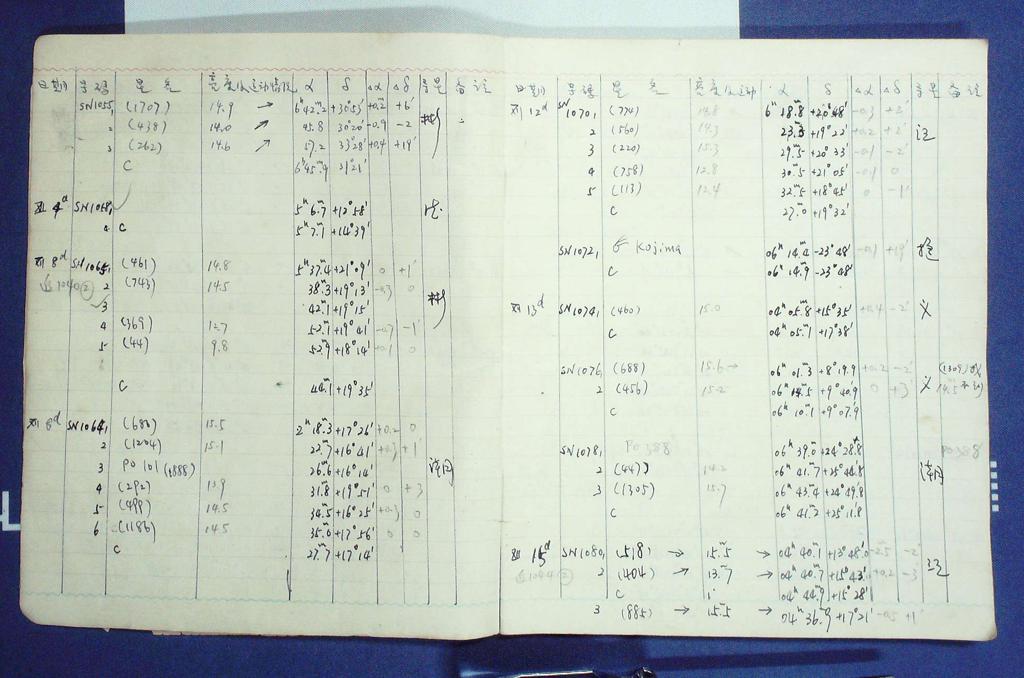 日期 号码 星名 亮度及运动情况 α δ Δα Δδ 备注
SN1055, (1707) 14.9 → 6ʰ42.ᵐ2 +30°53′ +0.2 +6′
2 (438) 14.0 ↗ 45.8 30°20′ -0.9 -2
3 (262) 14.6 ↗ 57.2 33°28′ +0.4 +19′
C 6ʰ45.ᵐ4 31°21′
4ᵈ SN1058,
5ʰ 6.ᵐ7 +12°58′
C 5ʰ 7.ᵐ1 +14°39′
8ᵈ (461) 14.8 5ʰ37.ᵐ4 +21°09′ 0 +1′
2 (743) 14.5 38.ᵐ3 +19°13′ -0.3 0
3 42.ᵐ1 +19°15′
4 (369) 12.7 52.ᵐ1 +19°41′ -1′
5 (44) 9.8 52.ᵐ9 +18°14′ +0.1 0
C 44.ᵐ1 +19°35′
8ᵈ SN1064, 15.5 2ʰ18.ᵐ3 +17°26′ +0.2 0
2 (1204) 15.1 22.ᵐ7 +16°41′ +1′
3 PO 101 (1888) 26.ᵐ6 +16°14′
4 (292) 13.9 31.ᵐ8 +19°51′ 0 +3
5 (499) 14.5 34.ᵐ5 +16°25′ +0.3 0
6 (1186) 14.5 35.ᵐ0 +17°56′ 0 0
C 27.ᵐ7 +17°14′
日期 号码 星名 亮度及运动 α δ Δα Δδ 备注
12ᵈ SN1070, (774) 14.8 6ʰ 28.ᵐ8 +20°48′ -0.3 +2′
2 (560) 14.3 23.ᵐ3 +19°22′ +0.2 +2′
3 (220) 15.3 29.ᵐ5 +20°33′ -0.1 -2′
4 (758) 12.8 30.ᵐ5 +21°05′ -0.1 0
5 (113) 12.4 32.ᵐ5 +18°45′ 0 -1′
C 27.ᵐ0 +19°32′
SN1072, Kojima 06ʰ 14.ᵐ4 -23°48′ -0.1 +19′
C 06ʰ 14.ᵐ9 -23°48′
13ᵈ SN1074, (460) 15.0 04ʰ 05.ᵐ8 +15°35′ +0.4 -2′
C 04ʰ 05.ᵐ1 +17°38′
SN1076, (688) 15.6 → 06ʰ 01.ᵐ3 +8°19.′9 +0.2 -2′ (1309)
2 (456) 15.2 06ʰ 14.ᵐ5 +9°40.′9 0 +3′ 14.5
C 06ʰ 10.ᵐ1 +9°07.′9
SN1078, PO 388 06ʰ 39.ᵐ0 +24°28.′8 PO388
2 (447) 14.2 06ʰ 41.ᵐ7 +25°44.′8
3 (1305) 15.7 06ʰ 43.ᵐ4 +24°49.′8
C 06ʰ 41.ᵐ2 +25°11.′8
15ᵈ SN1080, (518) → 15.ᵐ5 → 04ʰ 40.ᵐ1 +13°48.′0 -2.5 -2′
2 (404) → 13.ᵐ7 → 04ʰ 40.ᵐ7 +15°43.′0 +0.2 -3′
C 04ʰ 44.ᵐ9 +15°28′
3 (885) → 15.ᵐ5 → 04ʰ 36.ᵐ9 +17°21′ -0.5 +1′